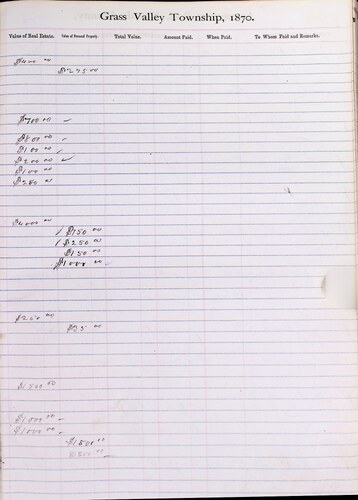 Grass Valley Township, 1870.
Value of Real Estate. Value of Personal Property. Total Value. Amount Paid. When Paid. To Whom Paid and Remarks.
$400 00
$275 00
$700 00
$800 00
$100 00
$200 00
$100 00
$250 00
$4000 00
$750 00
$250 00
$150 00
$1000 00
$250 00
$25 00
$1500 00
$1000 00
$1000 00
$1500 00
$300 00